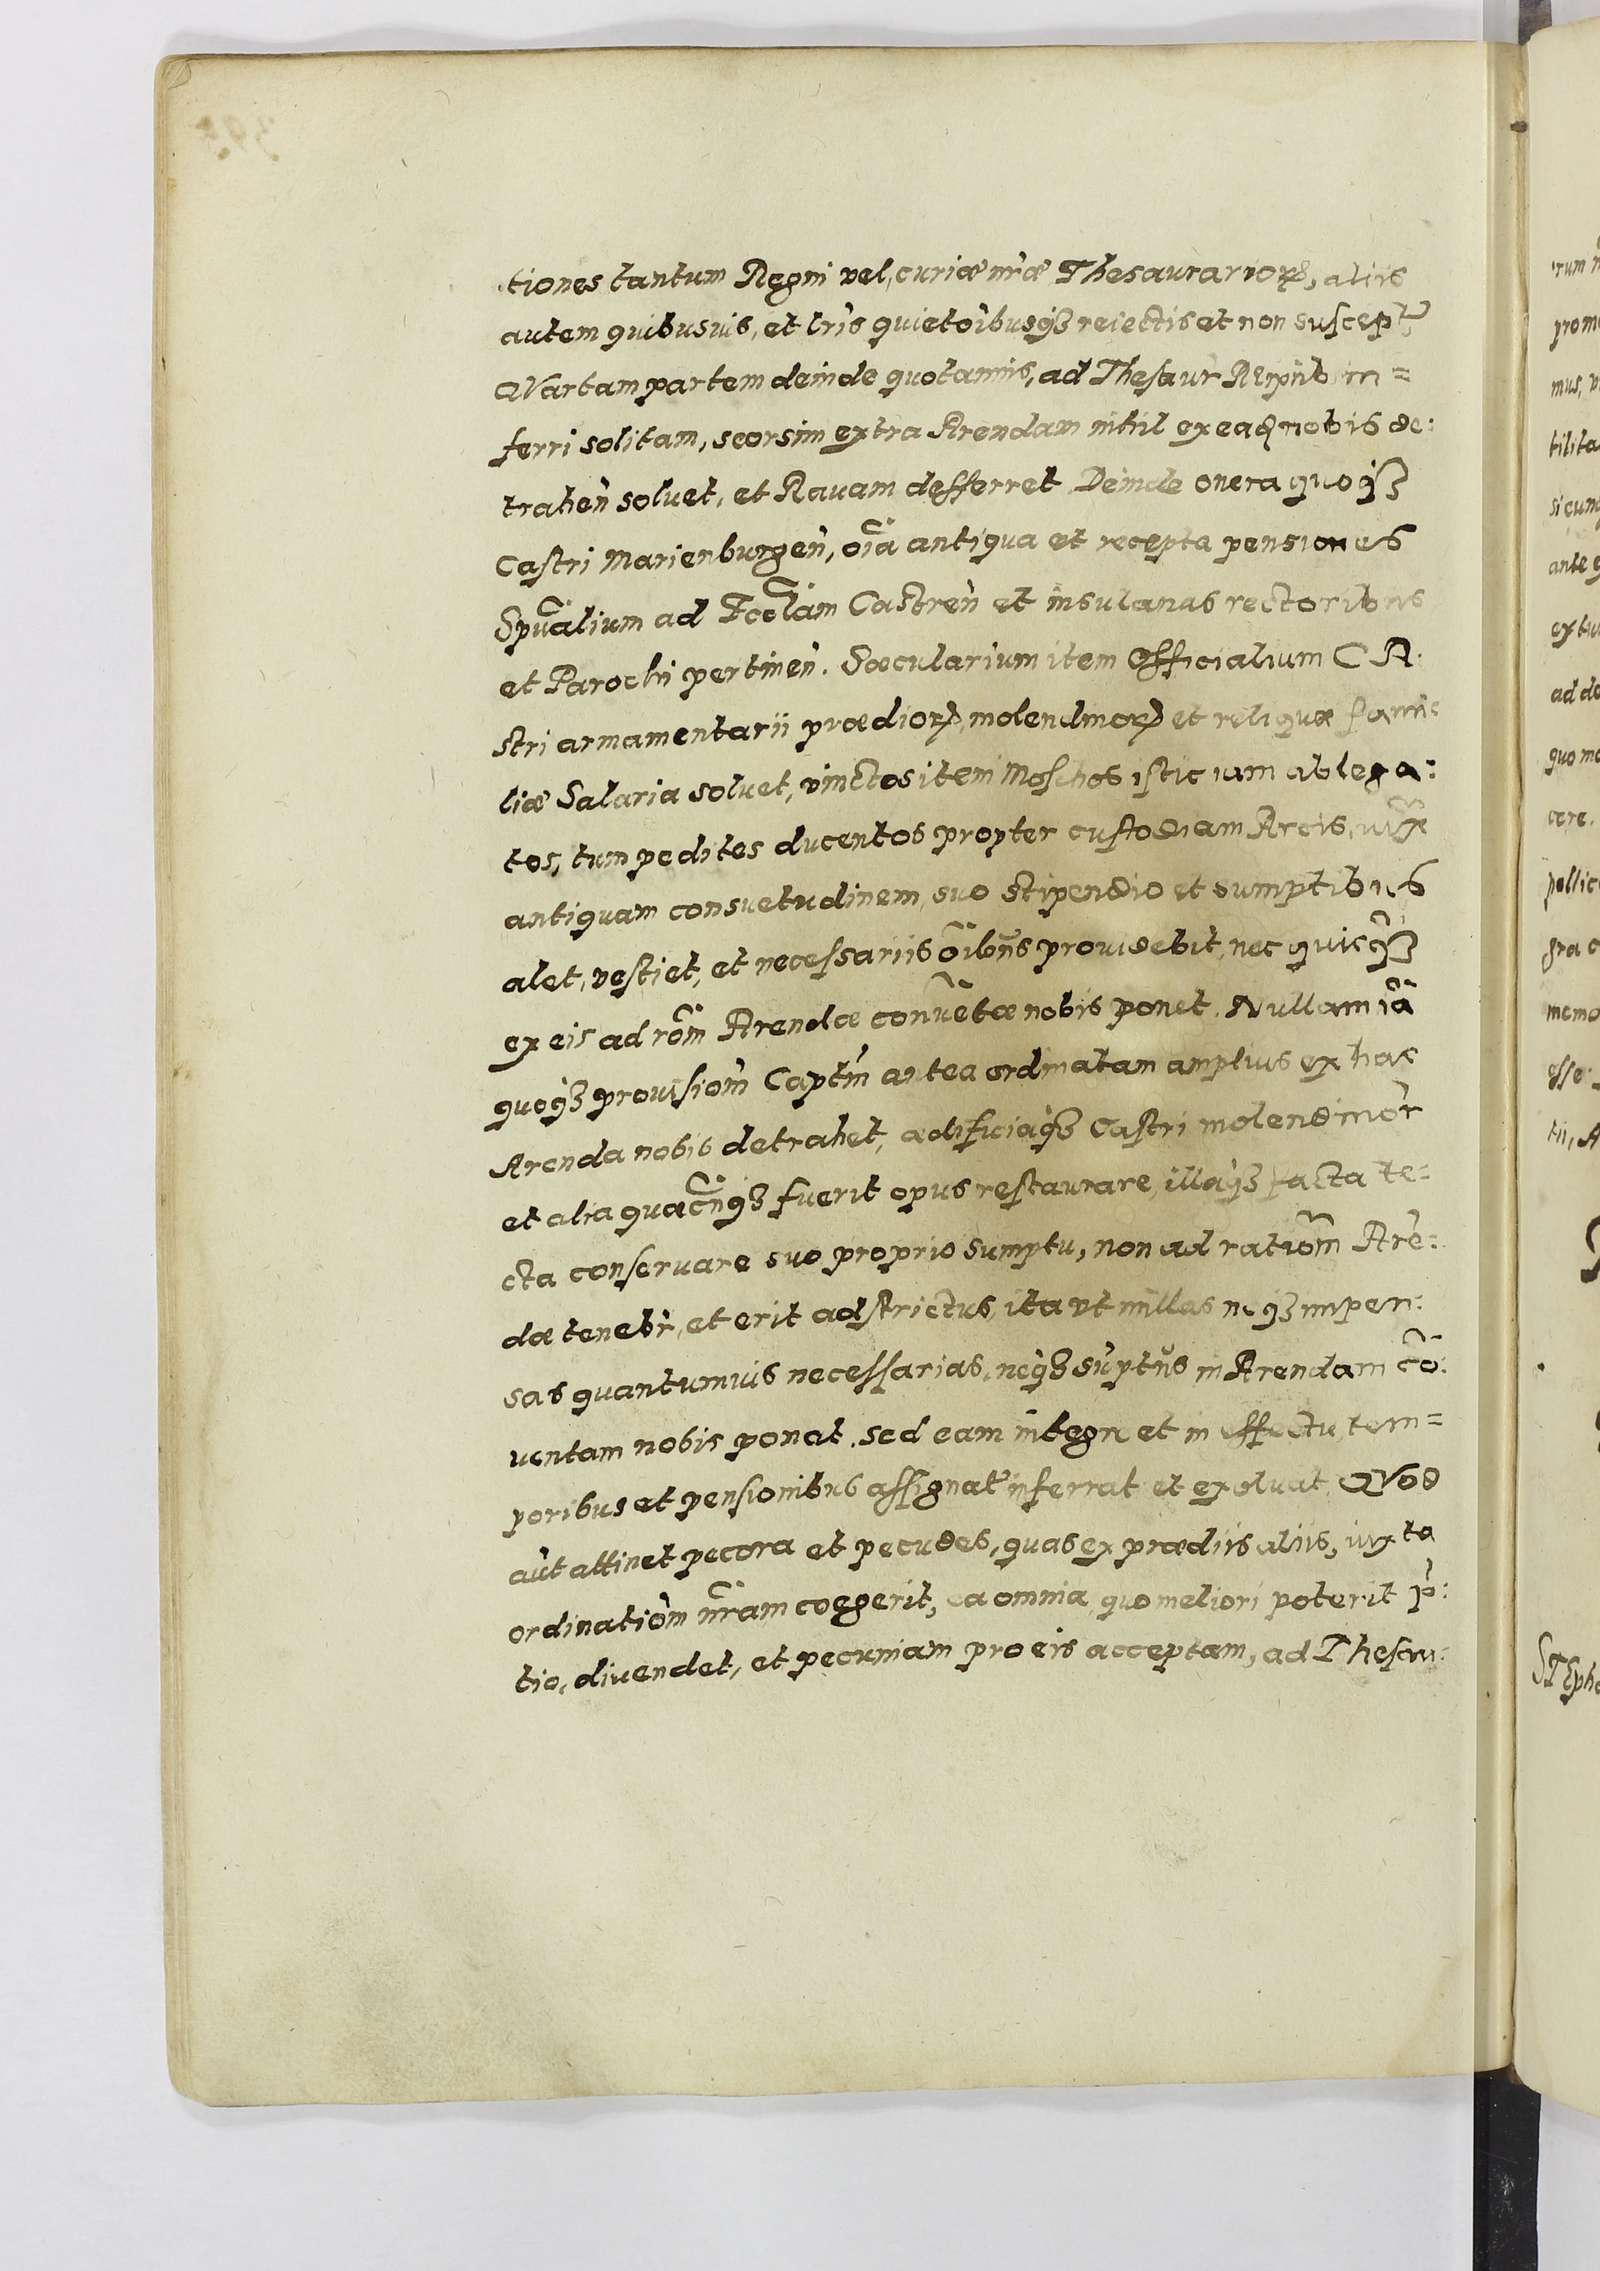 tiones tantum Regni vel, curiæ nr̃æ Thesaurarioꝝ, aliis
autem quibusuis, et lr̃is quietõibusqꝫ reiectis et non suscept,
QVartam partem deinde quotannis, ad Thesaur̃ in=
ferri solitam, seorsim extra Arendam nihil ex ea nobis de:
trahen̄ soluet, et Rauam defferret Deinde onera quoqꝫ
Castri Marienburgen̄, oĩa antiqua et recepta pensiones
Spũalium ad Eccl̃am Castren̄ et insulanas rectoribus
et Parochi pertinen̄. Sæcularium item Officialium CA
stri armamentarii prædioꝝ, molendinoꝝ et reliquæ fami
liæ Salaria soluet, vinctos item Moschos istic iam ablega:
tos, tum pedites ducentos propter custodiam Arcis, iuxta
antiquam consuetudinem, suo stipendio et sumptibus
alet, vestiet, et necessariis õibus prouidebit, nec quicqꝫ
ex eis ad rõm Arendæ conuẽtæ nobis ponet. Nullam iã
quoqꝫ prouisiom̃ Captm̃ antea ordinatam amplius ex hac
Arenda nobis detrahet, ædificiaqꝫ Castri molendinor̃
et alia quæcũqꝫ fuerit opus restaurare, illaqꝫ sarta te:
cta conseruare suo proprio sumptu, non ad ratiom̃ Arẽ:
dæ tenebr̃, et erit adstrictus, ita vt nullas neqꝫ impen:
sas quantumuis necessarias, neqꝫ sũptus in Arendam cõ:
uentam nobis ponat. sed eam integre et in effectu, tem=
poribus et pensionibus assignat̃ inferrat et exoluat, QVod
aũt attinet pecora et pecudes, quas ex prædiis aliis, iuxta
ordinatiom̃ nr̃am coegerit, ea omnia, quo meliori poterit p̃:
tio, diuendet, et pecuniam pro eis acceptam, ad Thesau: